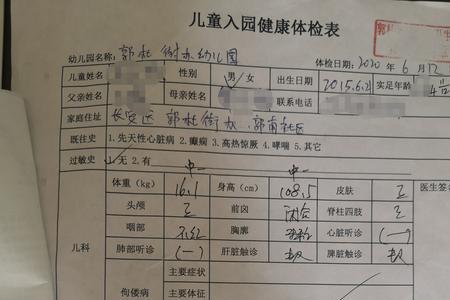 儿童入园健康体检表
幼儿园名称: 郭杜街办幼儿园 体检日期: 2020年6月12日
儿童姓名 性别 男/女 出生日期 2015.6.2 实足年龄
父亲姓名 母亲姓名 联系电话
家庭住址 长安区 郭杜街办 郭南社区
既往史 1.先天性心脏病 2.癫痫 3.高热惊厥 4.哮喘 5.其它
过敏史 1.无 2.有 中一 中一
体重(kg) 16.1 身高(cm) 108.5 皮肤 正 医生签
头颅 正 前囟 闭合 脊柱四肢 正
咽部 不红 胸廓 心脏听诊 (一)
儿科 肺部听诊 (一) 肝脏触诊 脾脏触诊
佝偻病 主要症状
主要体征